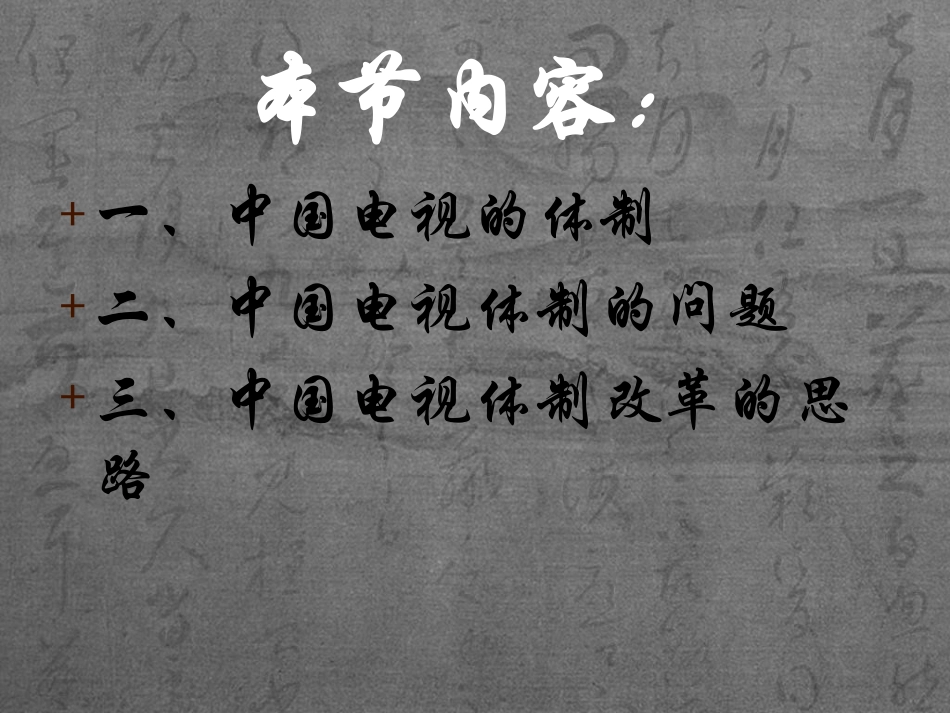 本节内容：
一、中国电视的体制
二、中国电视体制的问题
三、中国电视体制改革的思
路